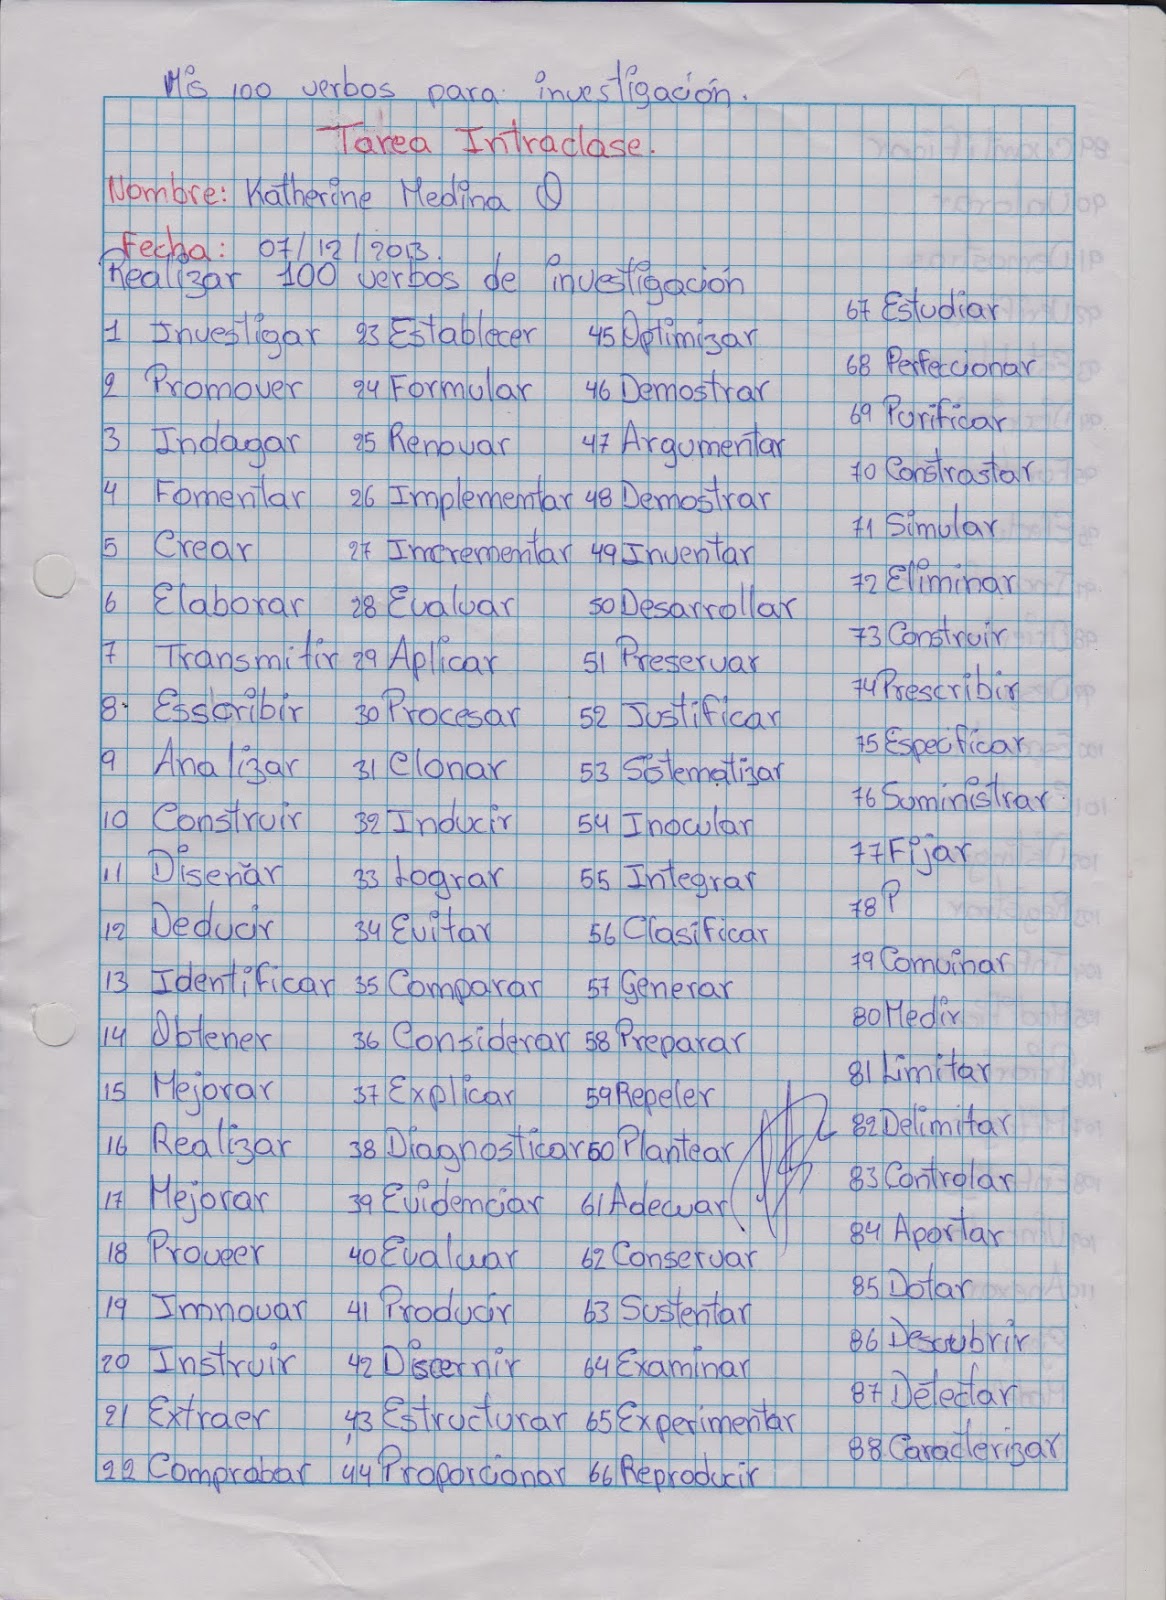 Mis 100 verbos para investigación.
Tarea Intraclase.
Nombre: Katherine Medina O
Fecha: 07/12/2013.
Realizar 100 verbos de investigación
1 Investigar
2 Promover
3 Indagar
4 Fomentar
5 Crear
6 Elaborar
7 Transmitir
8 Esscribir
9 Analizar
10 Construir
11 Diseñar
12 Deducir
13 Identificar
14 Obtener
15 Mejorar
16 Realizar
17 Mejorar
18 Proveer
19 Imnovar
20 Instruir
21 Extraer
22 Comprobar
23 Establecer
24 Formular
25 Renovar
26 Implementar
27 Incrementar
28 Evaluar
29 Aplicar
30 Procesar
31 Clonar
32 Inducir
33 Lograr
34 Evitar
35 Comparar
36 Considerar
37 Explicar
38 Diagnosticar
39 Evidenciar
40 Evaluar
41 Producir
42 Discernir
43 Estructurar
44 Proporcionar
45 Optimizar
46 Demostrar
47 Argumentar
48 Demostrar
49 Inventar
50 Desarrollar
51 Preservar
52 Justificar
53 Sistematizar
54 Inocular
55 Integrar
56 Clasificar
57 Generar
58 Preparar
59 Repeler
60 Plantear
61 Adecuar
62 Conservar
63 Sustentar
64 Examinar
65 Experimentar
66 Reproducir
67 Estudiar
68 Perfeccionar
69 Purificar
70 Constrastar
71 Simular
72 Eliminar
73 Construir
74 Prescribir
75 Especificar
76 Suministrar
77 Fijar
78 P
79 Comvinar
80 Medir
81 Limitar
82 Delimitar
83 Controlar
84 Aportar
85 Dotar
86 Descubrir
87 Detectar
88 Caracterizar